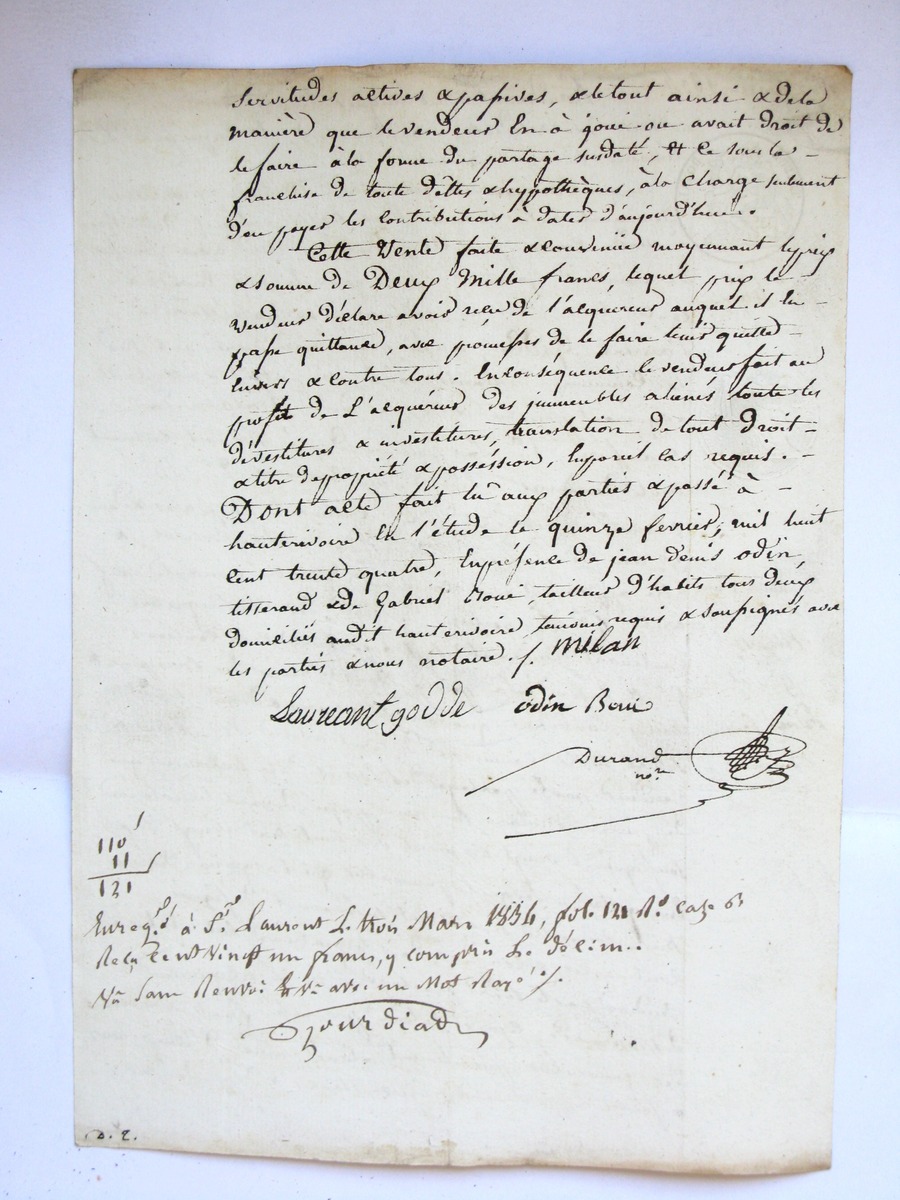 Servitudes actives & passives, & le tout ainsi & de la
manière que le vendeur En à joui ou avait droit de
le faire à la forme du partage susdaté, Et Ce sous la –
franchise de toute dettes & hypothèques, à la Charge seulement
d'en payer les Contributions à dater d'aujourd'hui.
Cette Vente faite & Convenüe moyennant le prix
& somme de Deux Mille francs, lequel prix le –
vendeur déclare avoir reçu de l'acquereur auquel il En –
passe quittance, avec promesses de le faire tenir quitte –
Envers & Contre tous. En Conséquence le vendeur fait au
profit de L'acquéreur des immeubles aliénés toute les
dévestitures & investitures, translation de tout droit –
& titre de propriété & posséssion, En pareil Cas requis. –
Dont acte fait lu aux parties & passé à –
hauterivoire En l'étude le quinze fevrier, mil huit
Cent trente quatre, En présence de jean denis odin,
tisserand & de Gabriel, tailleur d'habits tous deux
domiciliés audit hauterivoire temoins requis & soussignés avec
les parties & nous notaire. /. Milan
Laureant godde odin
Durand
nore
110
11
121
Enregé à St Laurent Le trois Mars 1834, fol. 121 Ro Case 6
Reçu Cent Vingt un francs, y compris Le décime.
avec un Mot Rayé /.